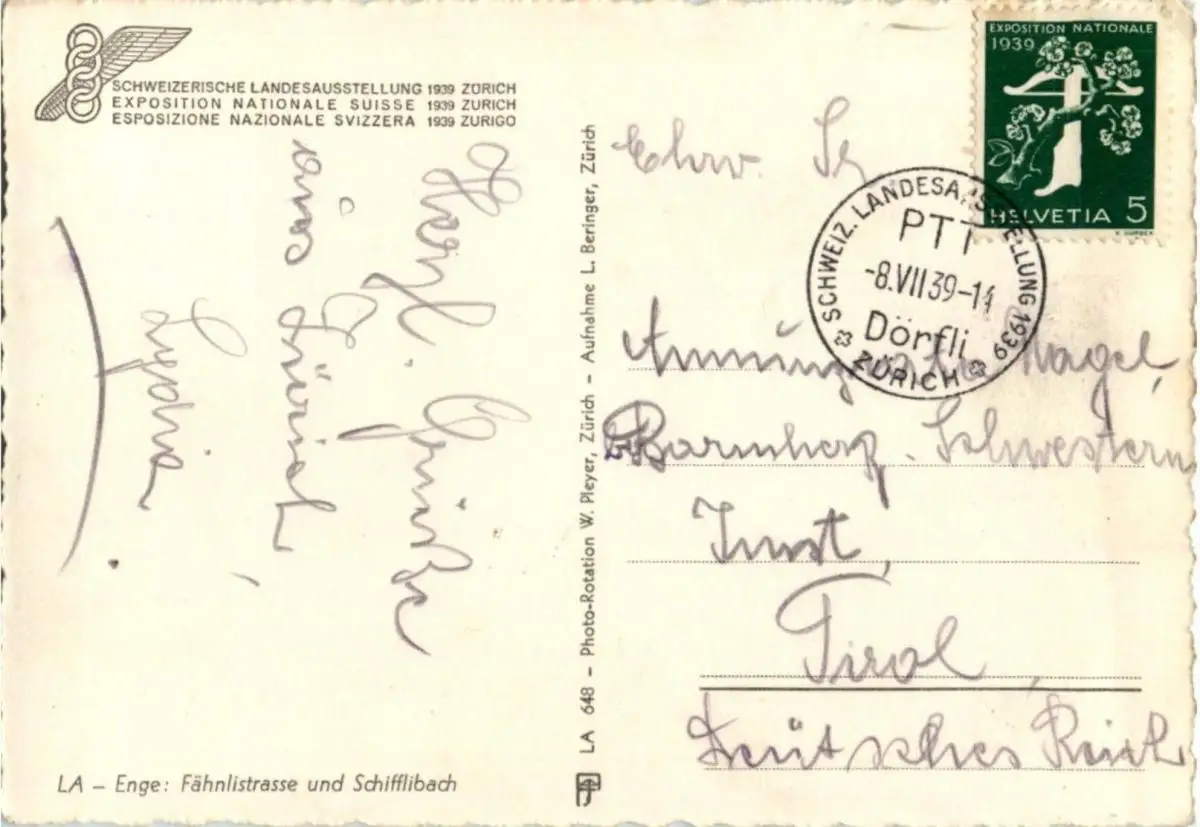 SCHWEIZERISCHE LANDESAUSSTELLUNG 1939 ZÜRICH
EXPOSITION NATIONALE SUISSE 1939 ZURICH
ESPOSIZIONE NAZIONALE SVIZZERA 1939 ZURIGO
Herzl. Grüße
aus Zürich
Lydia
LA – Enge: Fähnlistrasse und Schifflibach
LA 648 – Photo-Rotation W. Pleyer, Zürich – Aufnahme L. Beringer, Zürich
EXPOSITION NATIONALE
1939
HELVETIA 5
SCHWEIZ. LANDESAUSSTELLUNG 1939
PTT
-8.VII39-14
Dörfli
ZÜRICH
Ehrw.
Nagel,
Barmherz. Schwestern
Imst,
Tirol,
Deutsches Reich